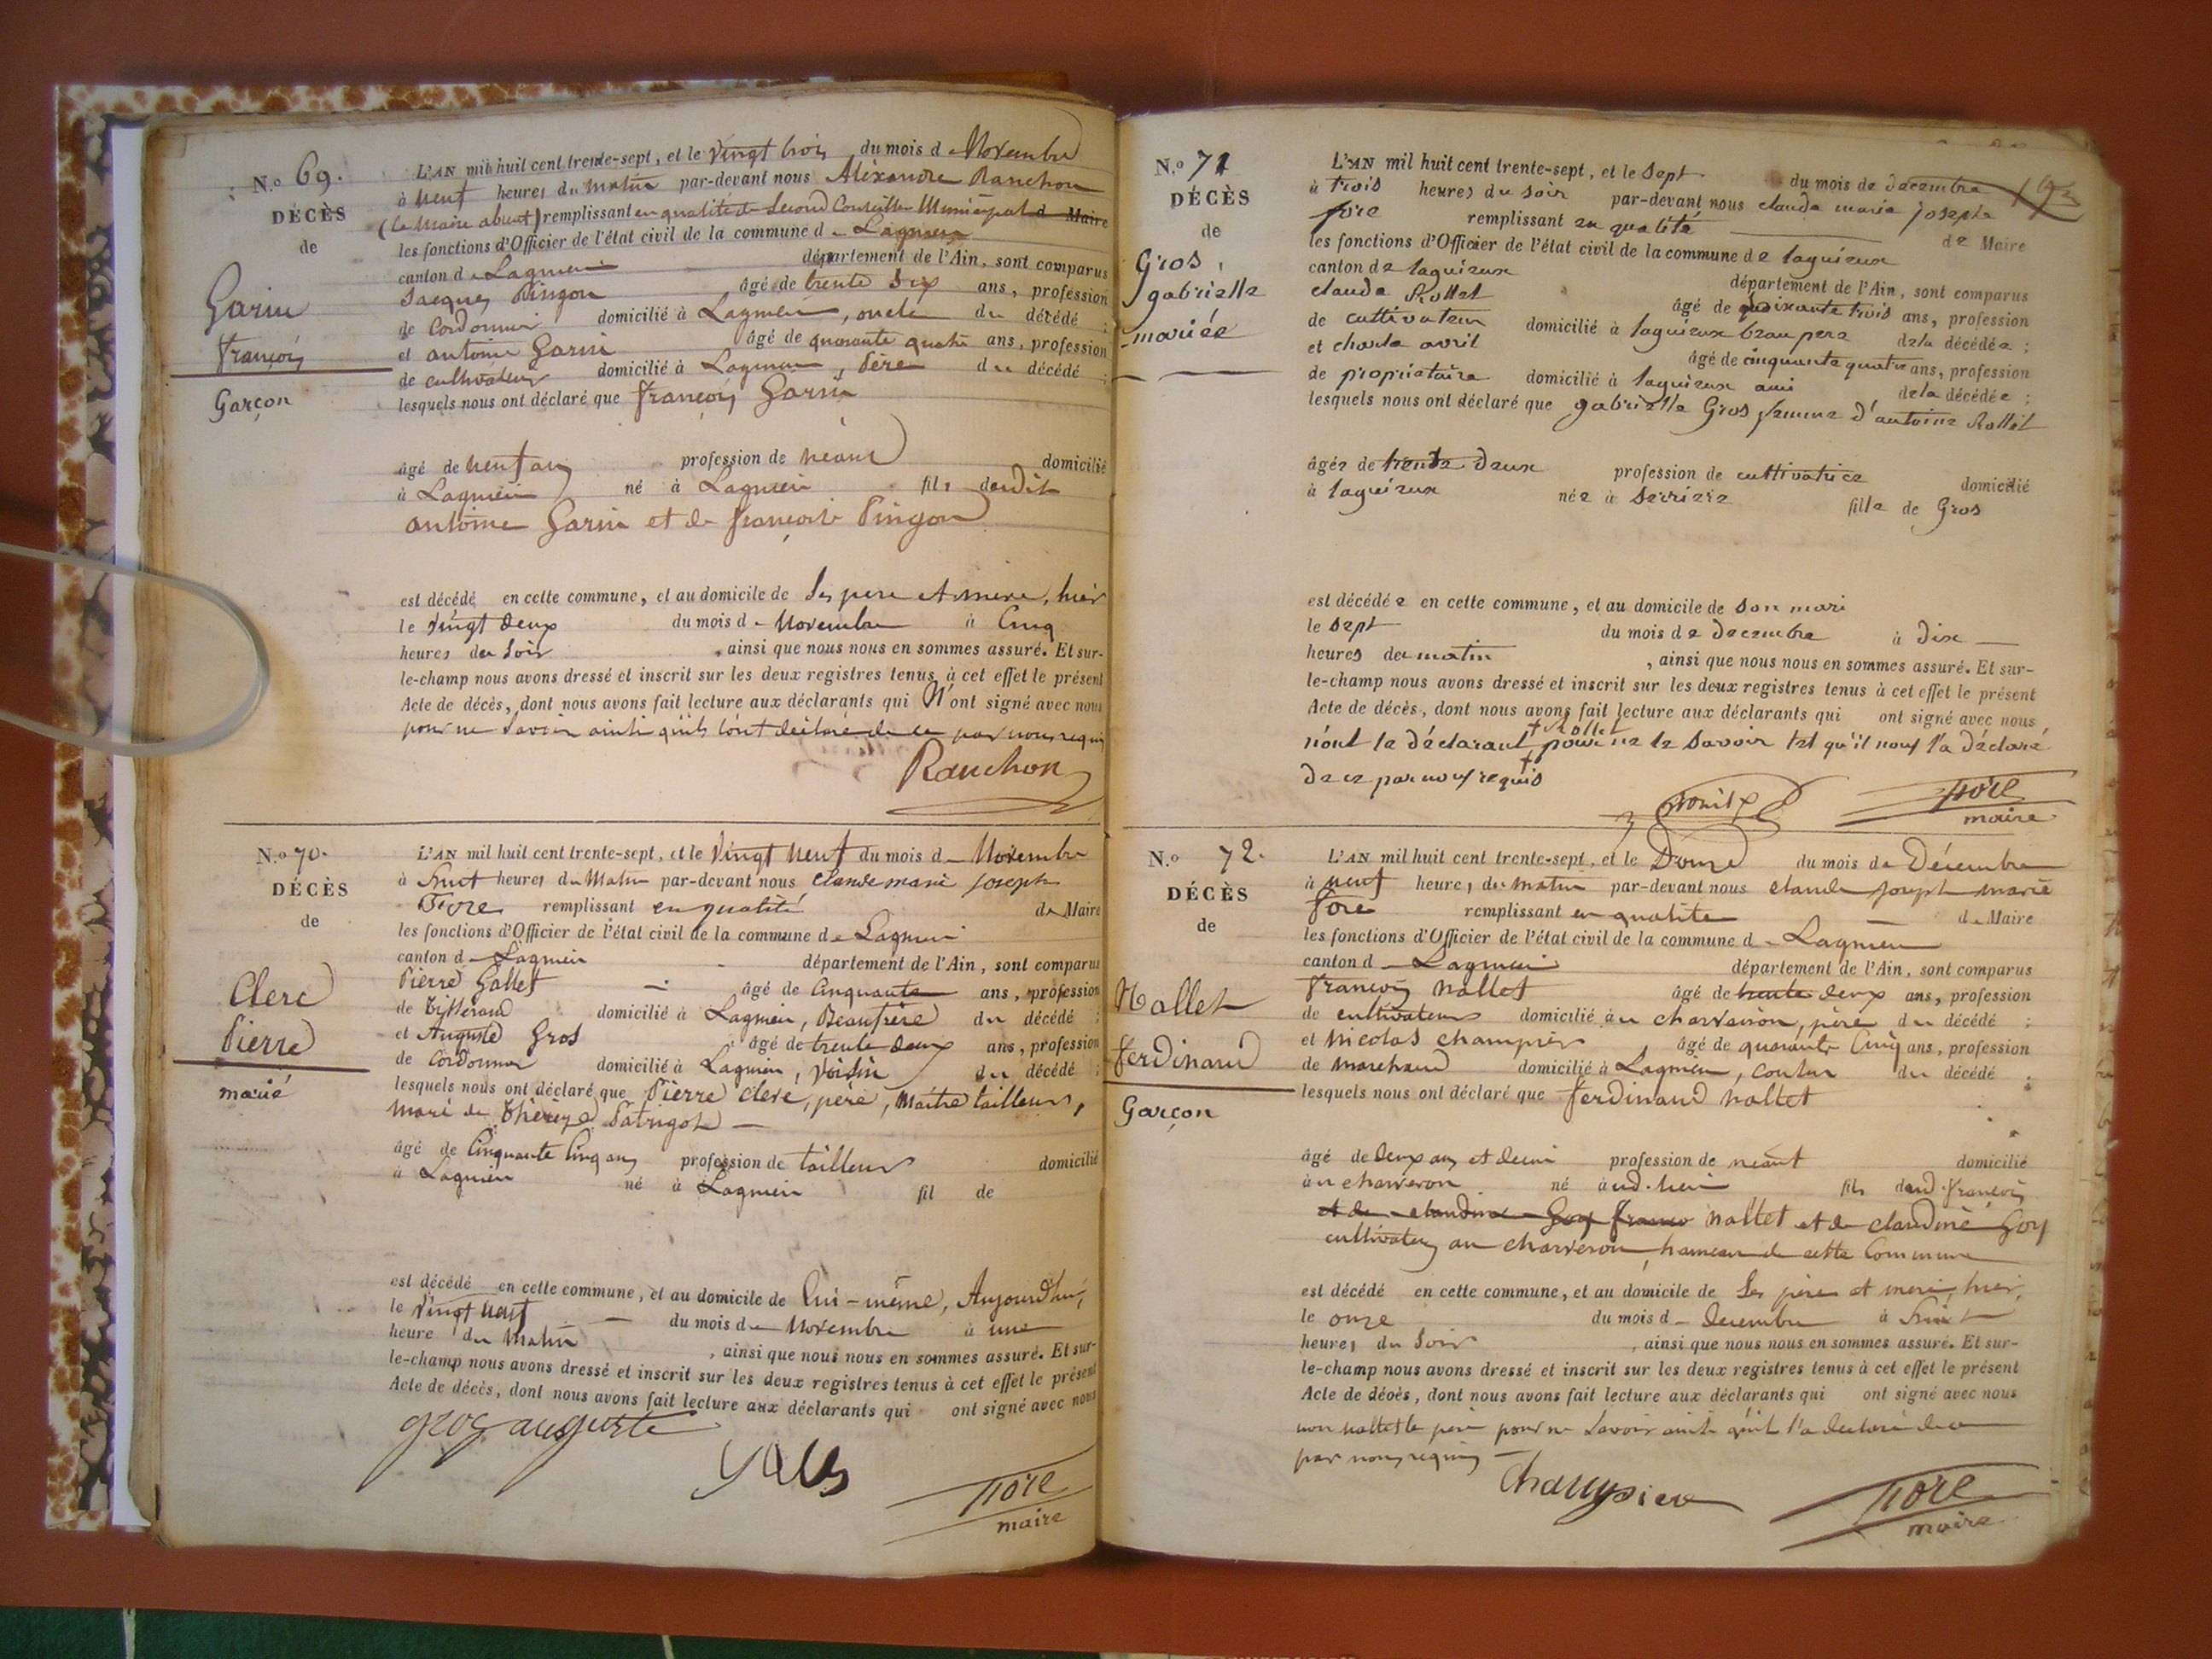 N.o 69.
DÉCÈS
de
Garin
françois
Garçon
L'AN mil huit cent trente-sept, et le vingt trois du mois de Novembre
à neuf heures du matin par-devant nous Aléxandre Ranchon
(le Maire absent) remplissant en qualité de Second Conseiller Municipal de Maire
les fonctions d'Officier de l'état civil de la commune de Lagnieu
canton de Lagnieu département de l'Ain, sont comparus
Jacques Pingon âgé de trente six ans, profession
de Cordonnier domicilié à Lagnieu, oncle du décédé ;
et antoine Garin âgé de quarante quatre ans, profession
de cultivateur domicilié à Lagnieu, père du décédé ;
lesquels nous ont déclaré que françois Garin
âgé de neuf ans profession de néant domicilié
à Lagnieu né à Lagnieu fils dudit
antoine Garin et de françoise Pingon
est décédé en cette commune, et au domicile de Ses père et mère, hier
le vingt deux du mois de Novembre à Cinq
heures du Soir, ainsi que nous nous en sommes assuré. Et sur-
le-champ nous avons dressé et inscrit sur les deux registres tenus à cet effet le présent
Acte de décès, dont nous avons fait lecture aux déclarants qui N'ont signé avec nous
pour ne Savoir ainsi qu'ils l'ont déclaré de ce par nous requis
Ranchon
N.o 70.
DÉCÈS
de
Clerc
Pierre
marié
L'AN mil huit cent trente-sept, et le Vingt neuf du mois de Novembre
à huit heures du Matin par-devant nous Claude marie Joseph
Fore remplissant en qualité de Maire
les fonctions d'Officier de l'état civil de la commune de Lagnieu
canton de Lagnieu département de l'Ain, sont comparus
Pierre Gallet âgé de Cinquante ans, profession
de Tisserand domicilié à Lagnieu, Beaufrère du décédé ;
et Auguste Gros âgé de trente deux ans, profession
de Cordonnier domicilié à Lagnieu, voisin du décédé ;
lesquels nous ont déclaré que Pierre Clerc, père, Maître tailleur,
mari de Thérèze Patrigot
âgé de Cinquante Cinq ans profession de tailleur domicilié
à Lagnieu né à Lagnieu fil de
est décédé en cette commune, et au domicile de Lui-même, Aujourd'hui,
le Vingt neuf du mois de Novembre à une
heure du Matin, ainsi que nous nous en sommes assuré. Et sur-
le-champ nous avons dressé et inscrit sur les deux registres tenus à cet effet le présent
Acte de décès, dont nous avons fait lecture aux déclarants qui ont signé avec nous
gros auguste
fore
maire
N.o 71
DÉCÈS
de
Gros,
gabrielle
mariée
L'AN mil huit cent trente-sept, et le Sept du mois de decembre
à trois heures du soir par-devant nous claude marie joseph
fore remplissant en qualité de Maire
les fonctions d'Officier de l'état civil de la commune de lagnieux
canton de lagnieux département de l'Ain, sont comparus
claude Rollet âgé de soixante trois ans, profession
de cultivateur domicilié à lagnieux beau pere de la décédée ;
et charle avril âgé de cinquante quatre ans, profession
de propriétaire domicilié à lagnieux ami de la décédée ;
lesquels nous ont déclaré que gabrielle Gros femme d'antoine Rollet
âgée de trente deux profession de cultivatrice domicilié
à lagnieux née à Serriere fille de Gros
est décédée en cette commune, et au domicile de son mari
le sept du mois de decembre à dix
heures du matin, ainsi que nous nous en sommes assuré. Et sur-
le-champ nous avons dressé et inscrit sur les deux registres tenus à cet effet le présent
Acte de décès, dont nous avons fait lecture aux déclarants qui ont signé avec nous,
+ Rollet
n'ont le déclarant + pour ne le savoir tel qu'il nous l'a déclaré
de ce par nous requis
fore
maire
N.o 72.
DÉCÈS
de
Nallet
ferdinand
Garçon
L'AN mil huit cent trente-sept, et le Douze du mois de Décembre
à neuf heures du matin par-devant nous claude joseph marie
fore remplissant en qualité de Maire
les fonctions d'Officier de l'état civil de la commune de Lagnieu
canton de Lagnieu département de l'Ain, sont comparus
françois nallet âgé de trente deux ans, profession
de cultivateur domicilié au charveron, père du décédé ;
et nicolas champier âgé de quarante Cinq ans, profession
de marchand domicilié à Lagnieu, du décédé ;
lesquels nous ont déclaré que ferdinand nallet
âgé de deux ans et demi profession de néant domicilié
au charveron né aud. lieu fils dud. françois
et de claudine Goy nallet et de claudine Goy
cultivateurs au charveron, hameau de cette Commune
est décédé en cette commune, et au domicile de Ses père et mère, hier,
le onze du mois de decembre à huit
heures du Soir, ainsi que nous nous en sommes assuré. Et sur-
le-champ nous avons dressé et inscrit sur les deux registres tenus à cet effet le présent
Acte de décès, dont nous avons fait lecture aux déclarants qui ont signé avec nous
non nallet le père pour ne Savoir ainsi qu'il l'a déclaré de ce
par nous requis
Champier
fore
maire